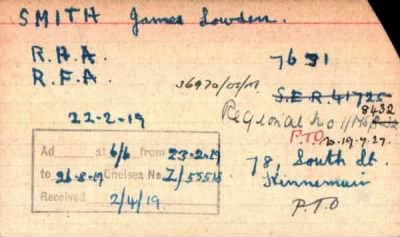 SMITH James Lowden.
R.H.A. 7631
R.F.A. 36970/05/M
S.E.R. 41725
22-2-19
Regional No 11/M5/
8432
P.T.O D.19.7.27.
Ad at 6/6 from 23-2-19
to 26-8-19 Chelsea No. Z/55515
Received 2/4/19
78, South St.
Kinnemuir
P.T.O